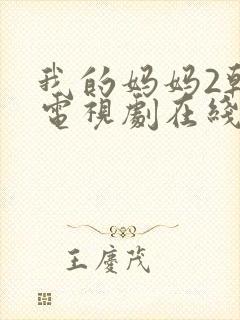 我的妈妈2韩
電視劇在綫
王慶茂